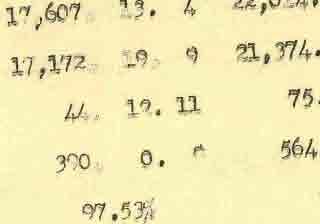 17,607. 13. 4
17,172. 19. 9 21,374.
44. 12. 11 75.
390. 0. 564
97.53%